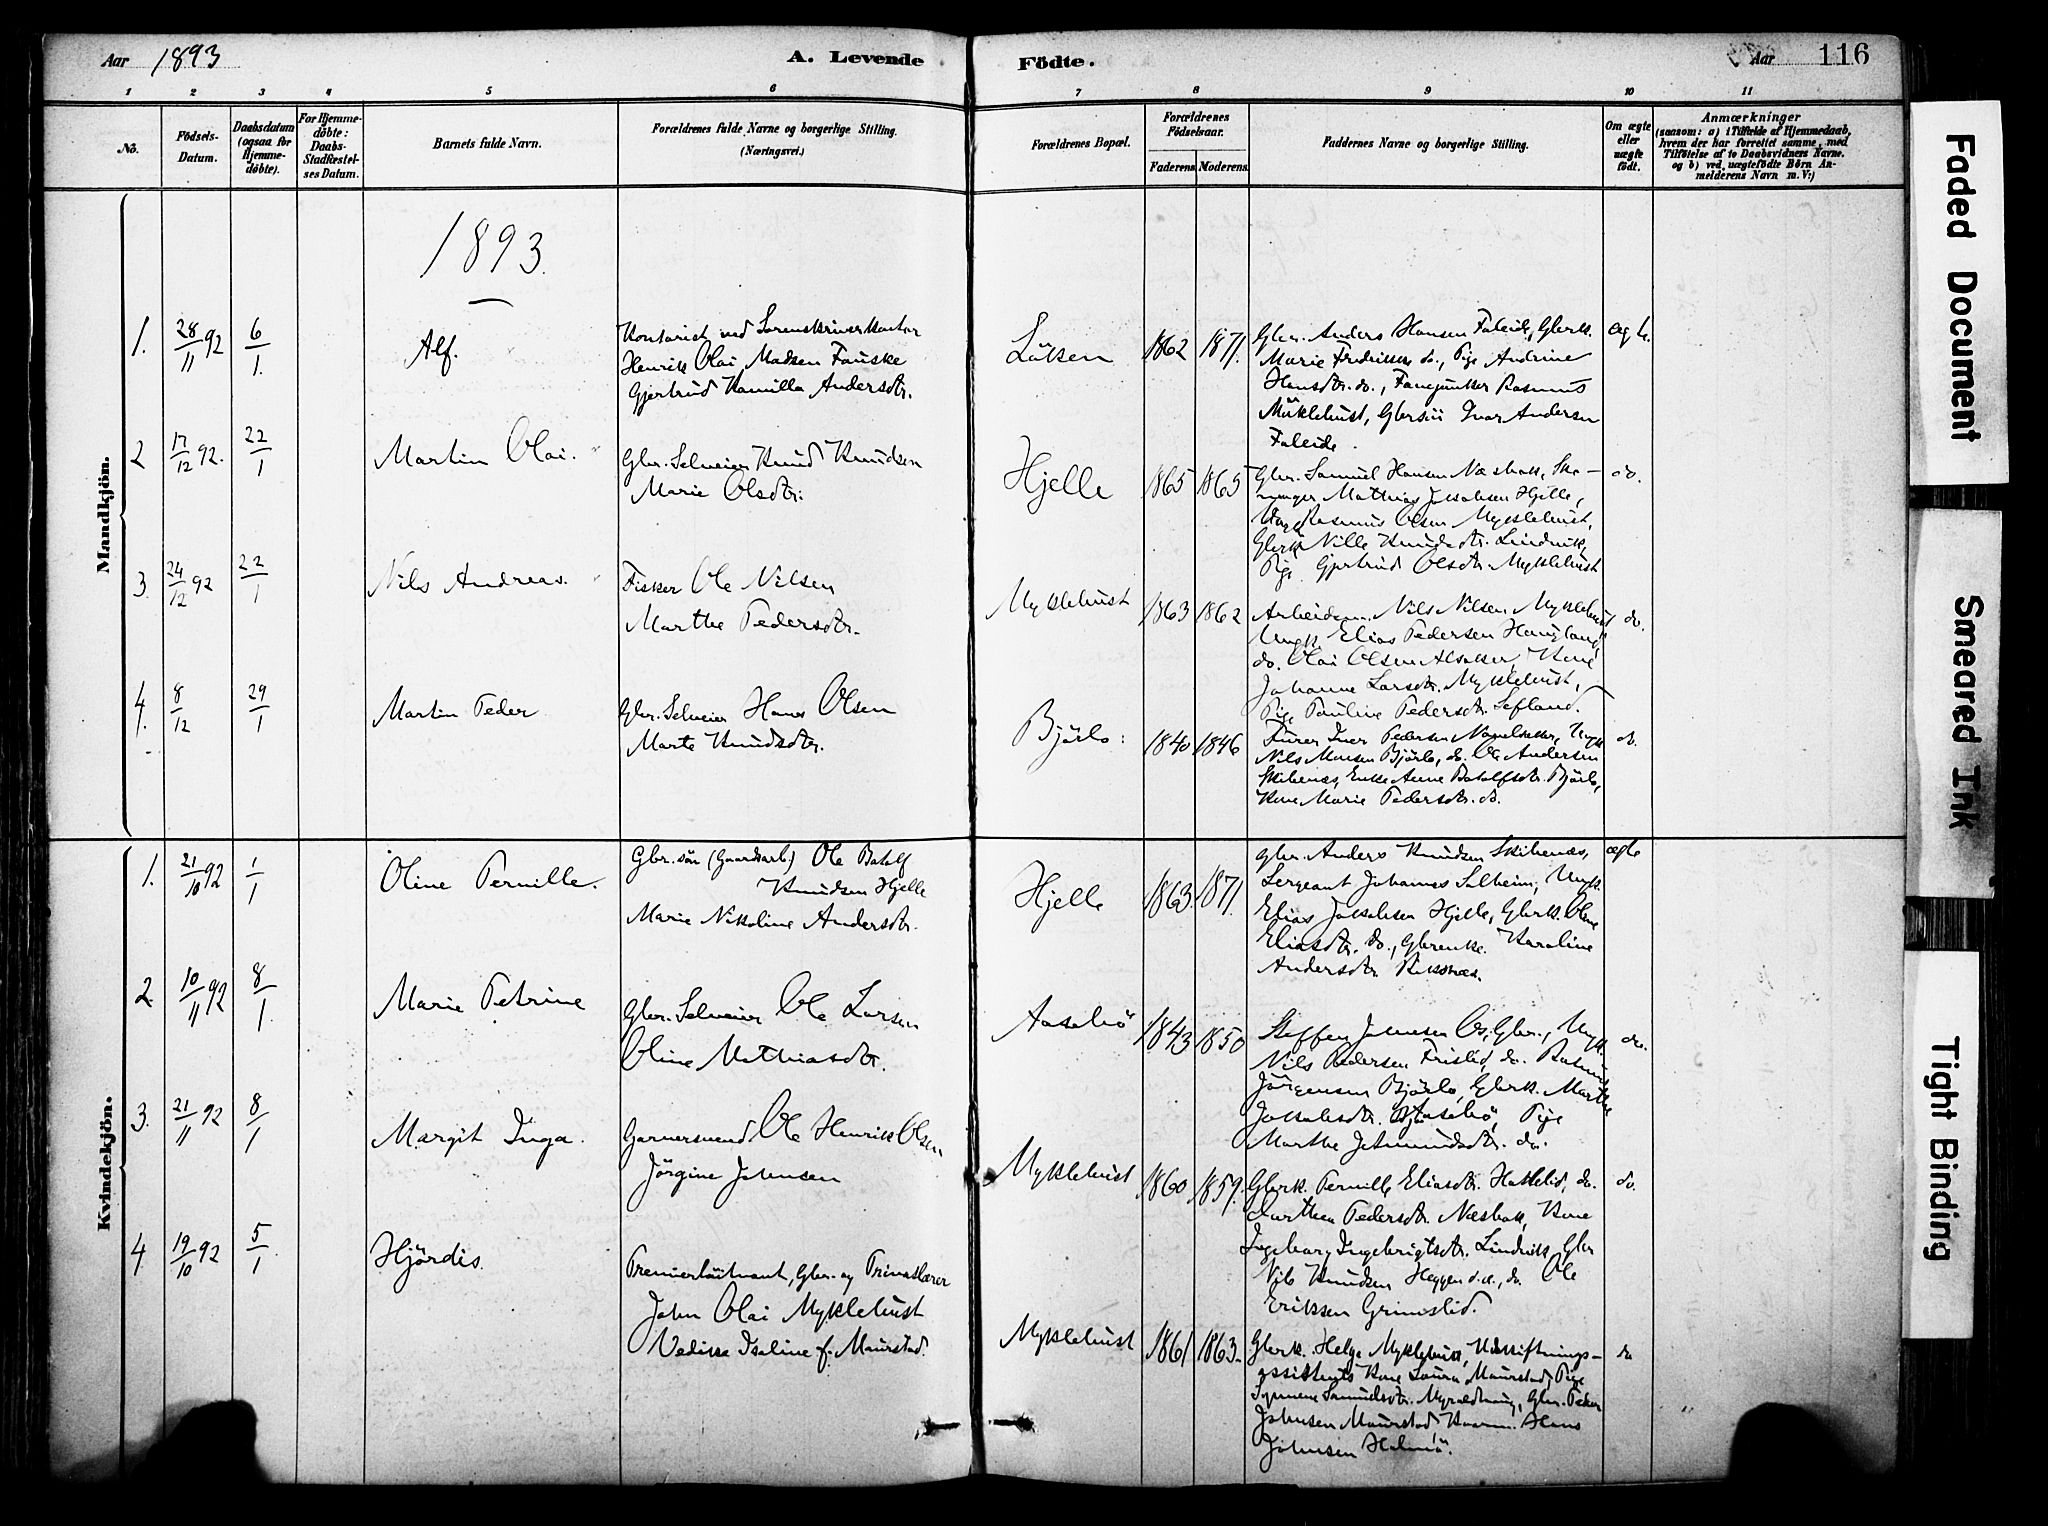 Aar 1893
A. Levende Födte.
Aar 116
1 2 3 4 5 6 7 8 9 10 11
No.
Födsels-
Datum.
Daabsdatum
(ogsaa for
Hjemme-
döbte).
For Hjemme-
döbte:
Daabs-
Stadfæstel-
ses Datum.
Barnets fulde Navn.
Forældrenes fulde Navne og borgerlige Stilling.
(Næringsvei.)
Forældrenes Bopæl.
Forældrenes
Födselsaar.
Faderens. Moderens.
Faddernes Navne og borgerlige Stilling.
Om ægte
eller
uægte
födt.
Anmærkninger
(saasom: a) i Tilfælde af Hjemmedaab,
hvem der har forrettet samme, med
Tilföielse af to Daabsvidners Navne.
og b) ved uægtefödte Börn An-
melderens Navn m. V:)
1893.
Mandkjön.
1. 28/11 92 6/1. Alf.
Kontorist ved Sorenskriverkontor
Henrik Olai Madsen Fauske
Gjertrud Kamilla Andersdtr.
Lötsen 1862 1871.
Gbr. Anders Hansen Faleide, Gbrk.
Marie Fredrikke do., Pige Andrine
Hansdtr. do., Fanejunker Rasmus
Myklebust, Gbrsön Ivar Andersen
Faleide.
2 17/12 92. 22/1 Martin Olai.
Gbr. Selveier Knud Knudsen
Marie Olsdtr.
Hjelle 1865 1865
Gbr. Samuel Hansen Næsbak,
Mathias Jakobsen Hjelle,
Rasmus Olsen Myklebust,
Gbrk Nille Knudsdtr. Lindvik,
Pige Gjertrud Olsdtr. Myklebust
do.
3. 24/12 92 22/1 Nils Andreas.
Fisker Ole Nilsen
Marthe Pedersdtr.
Myklebust 1863 1862
Arbeidsm. Nils Nilsen Myklebust
Ungk. Elias Pedersen Haugland,
do. Olai Olsen Alsaker, Kone
Johanne Larsdtr. Myklebust,
Pige Pauline Pedersdtr. Sefland.
do.
4. 8/12 29/1 Martin Peder
Gbr. Selveier Hans Olsen
Marte Knudsdtr.
Bjørlo: 1840 1846
Iver Pedersen Ungk
Nils Monsen Bjørlo, do. Ole Andersen
Skibenes, Enke Anne Botolfsdtr. Bjørlo,
Kone Marie Pedersdtr. do.
do.
Kvindekjön.
1. 21/10 92 1/1 Oline Pernille.
Gbr. sön (Gaardsarb.) Ole Botolf
Knudsen Hjelle
Marie Nikoline Andersdtr.
Hjelle 1863. 1871.
Gbr. Anders Knudsen Skibenæs,
Sergeant Johannes Solheim, Ungk.
Elias Jakobsen Hjelle, Gbrk. Oline
Eliasdtr. do., Gbrenke. Karoline
Andersdtr.
ægte
2. 10/11 92 8/1. Marie Petrine
Gbr. Selveier Ole Larsen
Oline Mathiasdtr.
Aasebö 1843 1850
Steffen Johnsen Os, Gbr., Ungk.
Nils Pedersen Frislid, do. Rasmus
Jörgensen Bjørlo, Gbrk. Marthe
Jakobsdtr. Aasebö, Pige
Marthe do.
do.
3. 21/11 92 8/1 Margit Inga.
Garversvend Ole Henrik Olsen
Jörgine Johnsen
Myklebust 1860 1859.
Gbrk. Pernille Eliasdtr. Hatlelid, do.
Dorthea Pedersdtr. Næsbak, Kone
Ingeborg Ingebrigtsdtr. Lindvik, Gbr
Nils Knudsen Heggen do. Ole
Eriksen Grimslid.
do.
4 19/10 92 5/1 Hjördis.
Premierlöitnant, Gbr. og Privatlærer
John Olai Myklebust
Vedikke Iseline f. Maurstad.
Myklebust 1861 1863.
Gbrk. Helge Myklebust, Udskiftnings-
assistents Kone Laura Maurstad, Pige
Synneve Samuelsdtr. Gbr. Peder
Johnsen Maurstad, Hans
Johnsen Holmö.
do
Faded Document
Smeared Ink
Tight Binding